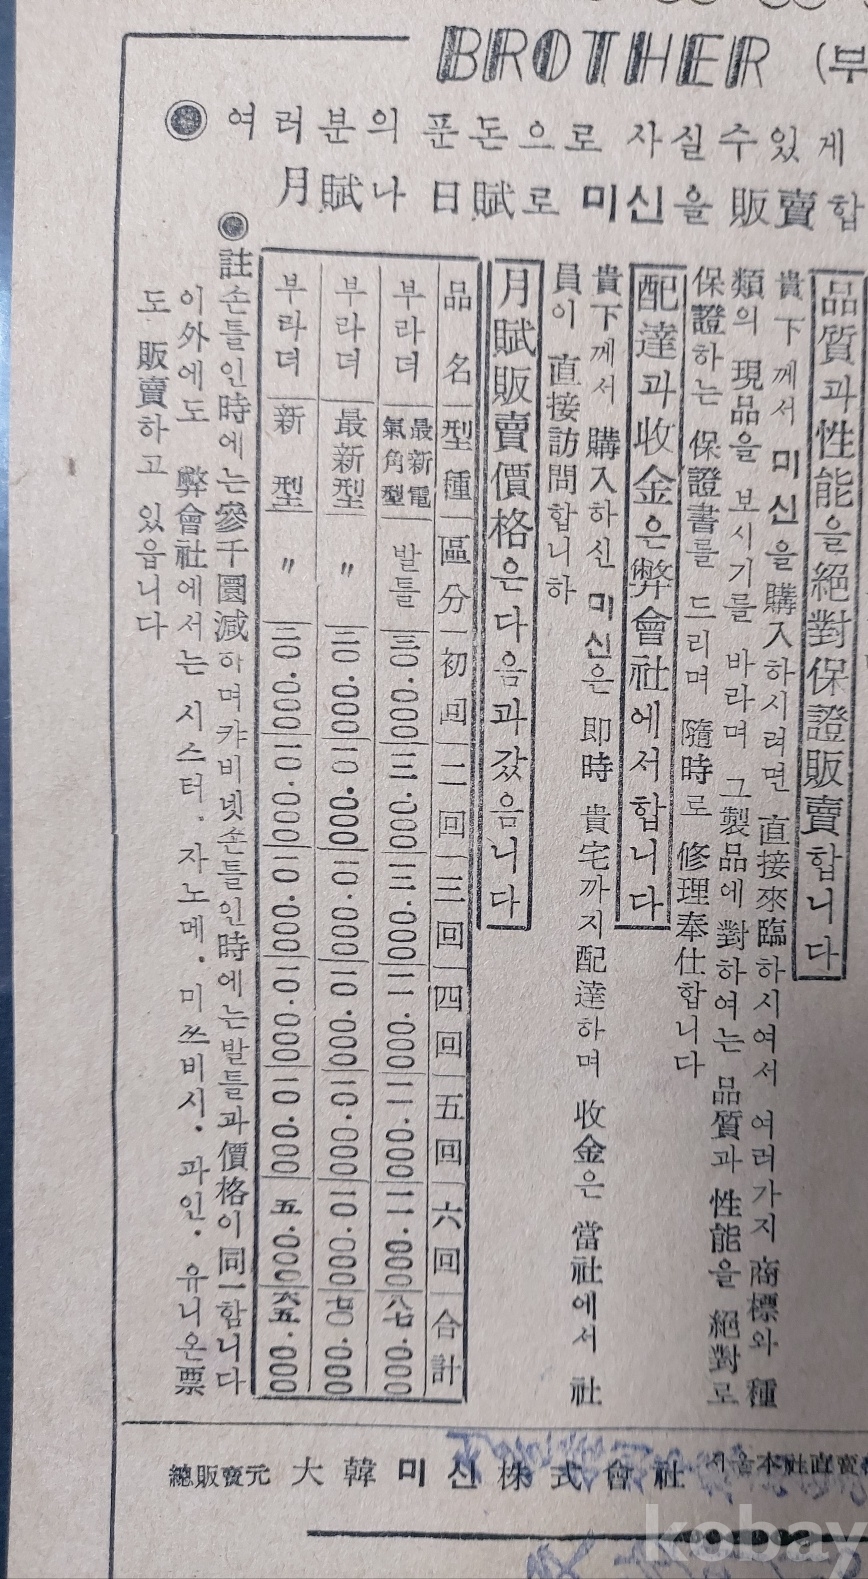 BROTHER (부
◉ 여러분의 푼돈으로 사실수있게
月賦나 日賦로 미신을 販賣합
品質과性能을絕對保證販賣합니다
貴下께서 미신을 購入하시려면 直接來臨하시여서 여러가지 商標와 種
類의 現品을 보시기를 바라며 그製品에 對하여는 品質과 性能을 絕對로
保證하는 保證書를 드리며 隨時로 修理奉仕합니다
配達과收金은弊會社에서합니다
貴下께서 購入하신 미신은 即時 貴宅까지配達하며 收金은 當社에서 社
員이 直接訪問합니하
月賦販賣價格은다음과값음니다
品名 型種 區分 初回 二回 三回 四回 五回 六回 合計
부라더 最新電氣角型 발틀 三〇.〇〇〇 一二.〇〇〇 一二.〇〇〇 一一.〇〇〇 一一.〇〇〇 一一.〇〇〇 八七.〇〇〇
부라더 最新型 〃 二〇.〇〇〇 一〇.〇〇〇 一〇.〇〇〇 一〇.〇〇〇 一〇.〇〇〇 一〇.〇〇〇 七〇.〇〇〇
부라더 新型 〃 二〇.〇〇〇 一〇.〇〇〇 一〇.〇〇〇 一〇.〇〇〇 一〇.〇〇〇 五.〇〇〇 六五.〇〇〇
◉註손틀인時에는參千圜減하며캬비넷손틀인時에는발틀과價格이同一함니다
이外에도 弊會社에서는 시스터. 자노메. 미쓰비시. 파인. 유니온票
도 販賣하고 있읍니다
總販賣元 大韓미신株式會社 서울本社直賣
kobay